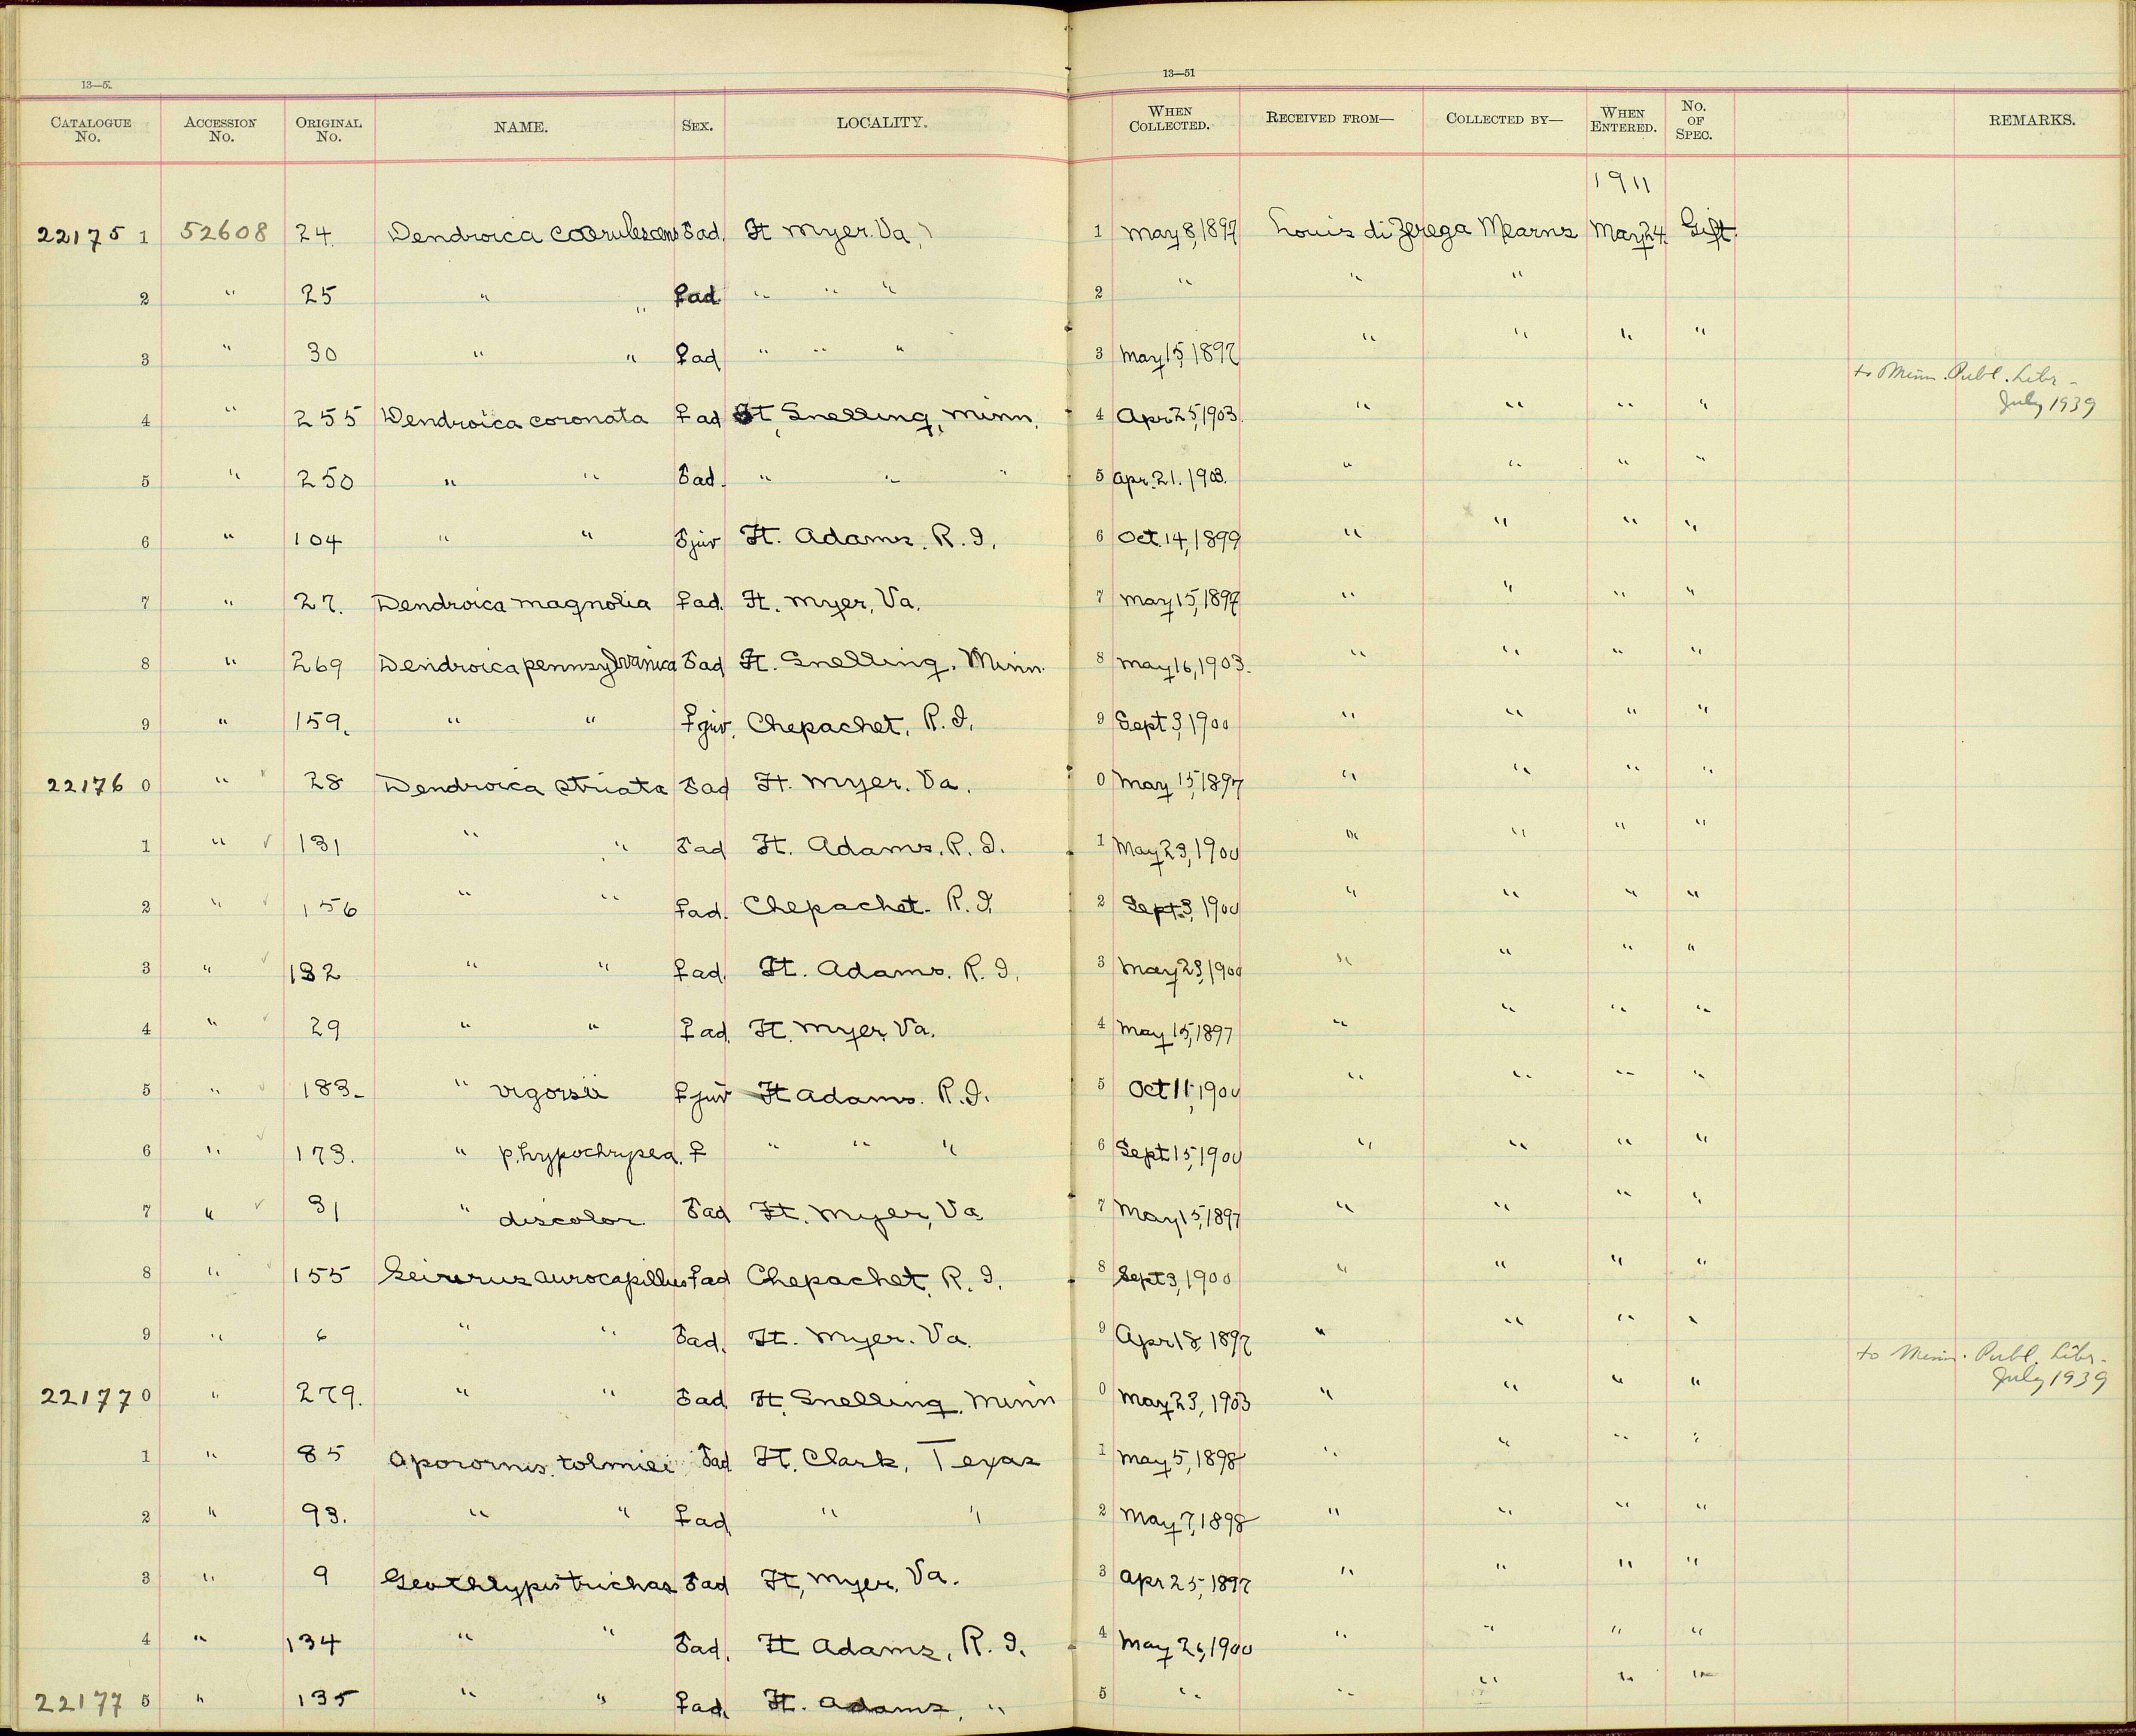 13—5
13—51
CATALOGUE No. ACCESSION No. ORIGINAL No. NAME. SEX. LOCALITY. WHEN COLLECTED. RECEIVED FROM— COLLECTED BY— WHEN ENTERED. NO. OF SPEC. REMARKS.
1911
22175 1 52608 24 Dendroica coerulescens ♂ad. Ft Myer. Va. 1 May 8, 1897 Louis di Zerega Mearns May 24. Gift.
2 " 25 " " ♀ad " " " 2 " " "
3 " 30 " " ♀ad " " " 3 May 15, 1897 " " " "
to Minn. Publ. Libr -
July 1939
4 " 255 Dendroica coronata ♀ad Ft, Snelling, Minn. 4 Apr 25, 1903. " " " "
5 " 250 " " ♂ad. " " " 5 Apr. 21. 1903. " " " "
6 " 104 " " ♂juv Ft. Adams. R. I. 6 Oct. 14, 1899 " " " "
7 " 27. Dendroica magnolia ♀ad. Ft. Myer, Va. 7 May 15, 1897 " " " "
8 " 269 Dendroica pennsylvanica ♂ad Ft. Snelling, Minn. 8 May 16, 1903. " " " "
9 " 159. " " ♀juv. Chepachet, R. I. 9 Sept 3, 1900 " " " "
22176 0 " 28 Dendroica striata ♂ad Ft. Myer. Va. 0 May 15, 1897 " " " "
1 " ✓ 131 " " ♂ad Ft. Adams. R. I. 1 May 23, 1900 " " " "
2 " ✓ 156 " " ♀ad. Chepachet. R. I. 2 Sept. 3, 1900 " " " "
3 " ✓ 132 " " ♀ad. Ft. Adams. R. I. 3 May 23, 1900 " " " "
4 " ✓ 29 " " ♀ad. Ft. Myer Va. 4 May 15, 1897 " " " "
5 " ✓ 183- " vigorsii ♀juv Ft Adams. R. I. 5 Oct 11, 1900 " " " "
6 " ✓ 173. " p. hypochrysea. ♀ " " " 6 Sept 15, 1900 " " " "
7 " ✓ 31 " discolor ♂ad Ft. Myer, Va 7 May 15, 1897 " " " "
8 " ✓ 155 Seiurus aurocapillus ♀ad Chepachet, R. I. 8 Sept 3, 1900 " " " "
9 " 6 " " ♂ad. Ft. Myer. Va. 9 Apr 18, 1897 " " " "
to Minn. Publ. Libr -
July 1939
22177 0 " 279. " " ♂ad Ft. Snelling, Minn 0 May 23, 1903 " " " "
1 " 85 Oporornis. tolmiei ♂ad Ft. Clark, Texas 1 May 5, 1898 " " " "
2 " 93. " " ♀ad " " 2 May 7, 1898 " " " "
3 " 9 Geothlypis trichas ♂ad Ft, Myer, Va. 3 Apr 25, 1897 " " " "
4 " 134 " " ♂ad. Ft Adams, R. I. 4 May 26, 1900 " " " "
22177 5 " 135 " " ♀ad. Ft. Adams, " 5 " " " " "